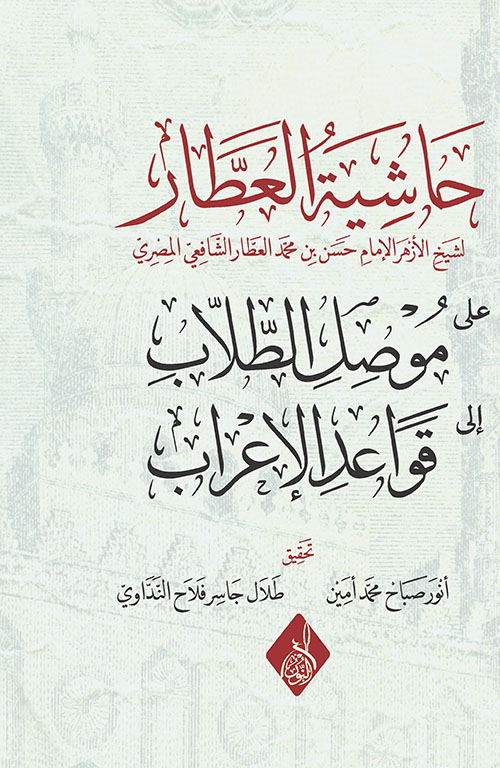 حَاشِيَةُ العَطَّار
لشيخ الأزهر الإمام حَسَن بن محمَّد العطَّار الشَّافِعيّ المِصْرِيّ
على
مُوْصِلِ الطُّلَّابِ
إلى
قَوَاعِدِ الإِعْرَاب
تحقيق
أنْوَر صَبَاح محمَّد أمين   طَلَال جَاسِر فَلَاح النَّدَّاويّ